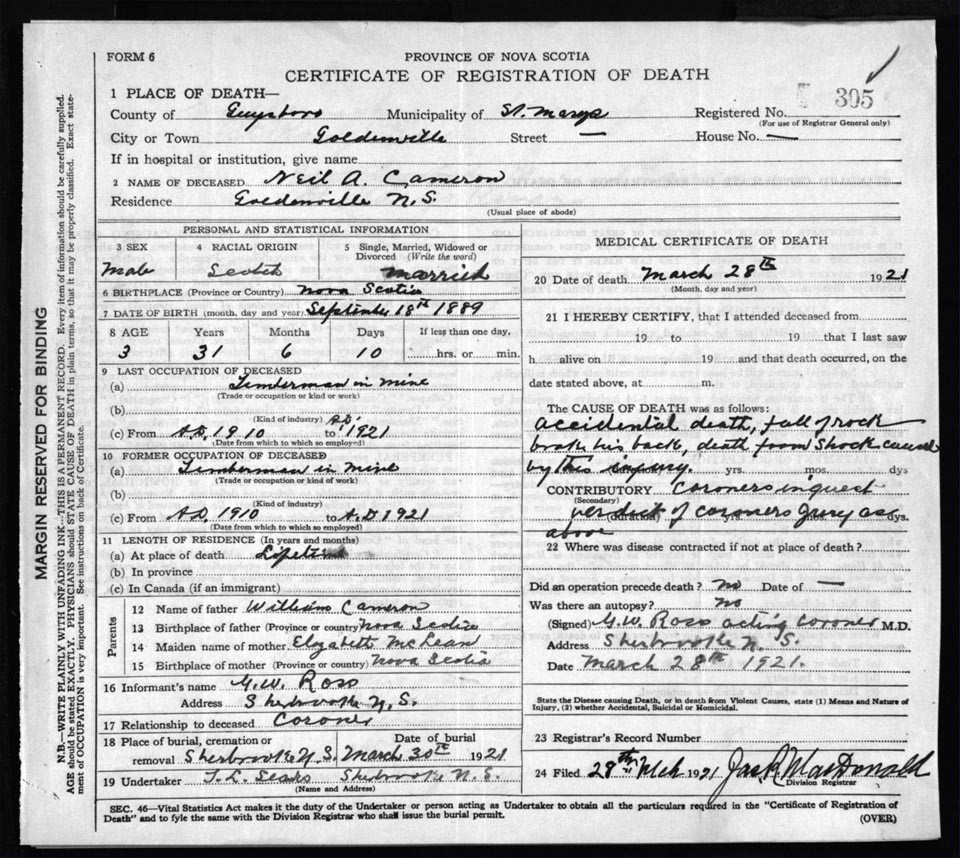 FORM 6
PROVINCE OF NOVA SCOTIA
CERTIFICATE OF REGISTRATION OF DEATH
305
1 PLACE OF DEATH—
County of Guysboro Municipality of St. Marys Registered No.
(For use of Registrar General only)
City or Town Goldenville Street — House No. —
If in hospital or institution, give name
2 NAME OF DECEASED Neil A. Cameron
Residence Goldenville N.S.
(Usual place of abode)
PERSONAL AND STATISTICAL INFORMATION
3 SEX 4 RACIAL ORIGIN 5 Single, Married, Widowed or Divorced (Write the word)
Male Scotch Married
6 BIRTHPLACE (Province or Country) Nova Scotia
7 DATE OF BIRTH (month, day and year) September 18th 1889
8 AGE Years Months Days If less than one day,
3 31 6 10 hrs. or min.
9 LAST OCCUPATION OF DECEASED
(a) Timberman in mine
(Trade or occupation or kind or work)
(b)
(Kind of industry)
(c) From A.D. 1910 to A.D. 1921
(Date from which to which so employed)
10 FORMER OCCUPATION OF DECEASED
(a) Timberman in mine
(Trade or occupation or kind of work)
(b)
(Kind of industry)
(c) From A.D. 1910 to A.D 1921
(Date from which to which so employed)
11 LENGTH OF RESIDENCE (In years and months)
(a) At place of death Lifetime
(b) In province
(c) In Canada (if an immigrant)
Parents
12 Name of father William Cameron
13 Birthplace of father (Province or country) Nova Scotia
14 Maiden name of mother Elizabeth McLean
15 Birthplace of mother (Province or country) Nova Scotia
16 Informant's name G.W. Ross
Address Sherbrooke N.S.
17 Relationship to deceased Coroner
18 Place of burial, cremation or removal Date of burial
Sherbrooke N.S. March 30th 1921
19 Undertaker Sears Sherbrooke N.S.
(Name and Address)
MEDICAL CERTIFICATE OF DEATH
20 Date of death March 28th 1921
(Month, day and year)
21 I HEREBY CERTIFY, that I attended deceased from
19 to 19 that I last saw
h alive on 19 and that death occurred, on the
date stated above, at m.
The CAUSE OF DEATH was as follows:
accidental death, fall of rock
broke his back, death from Shock caused
by this injury. yrs. mos. dys
CONTRIBUTORY Coroners inquest
(Secondary)
verdict of coroners Jury as
(duration) yrs. mos. dys.
above
22 Where was disease contracted if not at place of death?
Did an operation precede death? no Date of —
Was there an autopsy? no
(Signed) G.W. Ross acting Coroner M.D.
Address Sherbrooke N.S.
Date March 28th 1921.
State the Disease causing Death, or in death from Violent Causes, state (1) Means and Nature of
Injury, (2) whether Accidental, Suicidal or Homicidal.
23 Registrar's Record Number
24 Filed 28th Mch 1921 Jas. R. MacDonald
Division Registrar
SEC. 46—Vital Statistics Act makes it the duty of the Undertaker or person acting as Undertaker to obtain all the particulars required in the "Certificate of Registration of
Death" and to fyle the same with the Division Registrar who shall issue the burial permit.
(OVER)
MARGIN RESERVED FOR BINDING
N.B.—WRITE PLAINLY WITH UNFADING INK—THIS IS A PERMANENT RECORD. Every item of information should be carefully supplied.
AGE should be stated EXACTLY. PHYSICIANS should STATE CAUSE OF DEATH in plain terms, so that it may be properly classified. Exact state-
ment of OCCUPATION is very important. See instructions on back of Certificate.